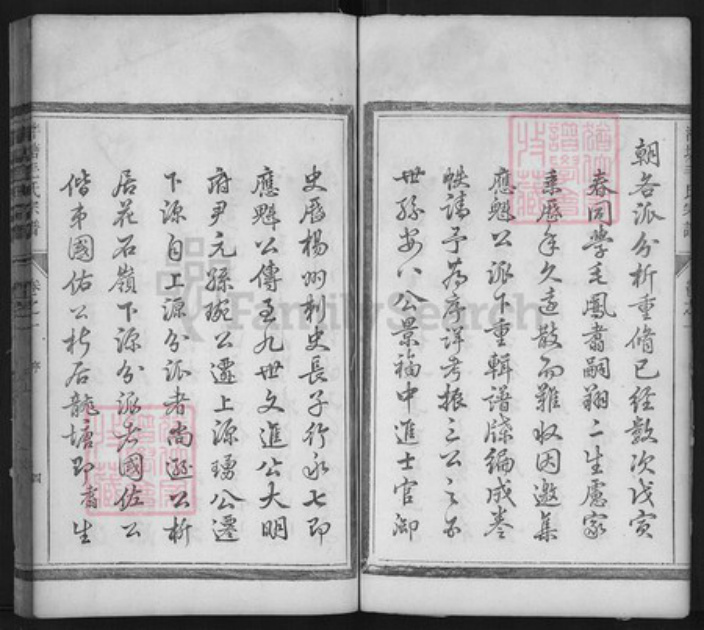 朝各派分析重脩已經數次戊寅
春同學毛鳳翥嗣翔二生慮家
乘歷年久遠散而難收因邀集
應魁公派下重輯譜牒編成卷
帙請予為序詳考振三公之
世孫安八公景福中進士官御
史歷楊州刺史長子行永七即
應魁公傳至九世文進公大明
府尹元孫琬公遷上源瑀公遷
下源自上源分派者尚遜公析
居花石嶺下源分派者國佐公
偕弟國佑公析居龍塘即翥生
FamilySearch